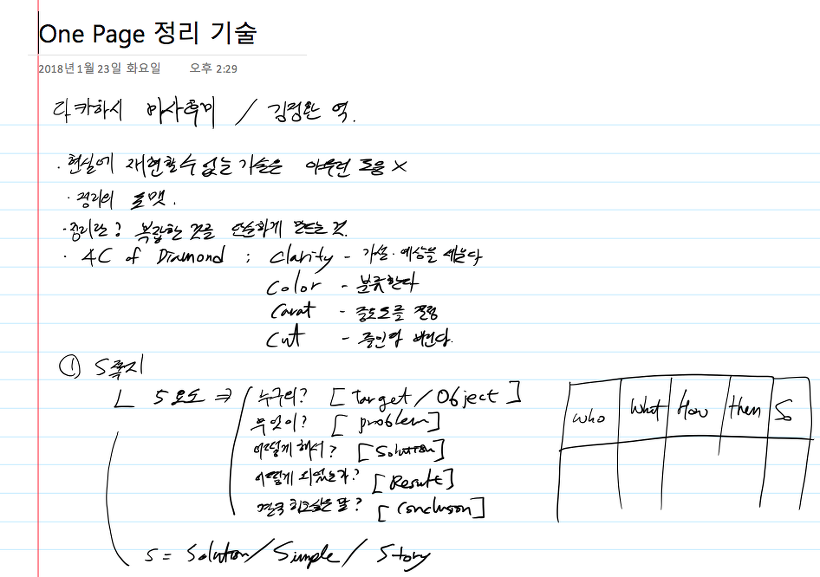 One Page 정리 기술
2018년 1월 23일 화요일 오후 2:29
다카하시 마사후미 / 김정환 역.
· 현실에 재현할 수 없는 기술은 아무런 도움 ×
· 정리의 포맷.
· 정리란? 복잡한 것을 단순하게 만드는 것.
· 4C of Diamond ; Clarity - 가설·예상을 세운다
Color - 분류한다
Carat - 중요도를 결정
Cut -
① S쪽지
ㄴ 5요소 ⇒ 누구의? [Target / Object]
무엇이? [problem]
어떻게 해서? [Solution]
어떻게 되었는가? [Result]
결국 하고싶은 말? [Conclusion]
S = Solution / Simple / Story
Who What How then So